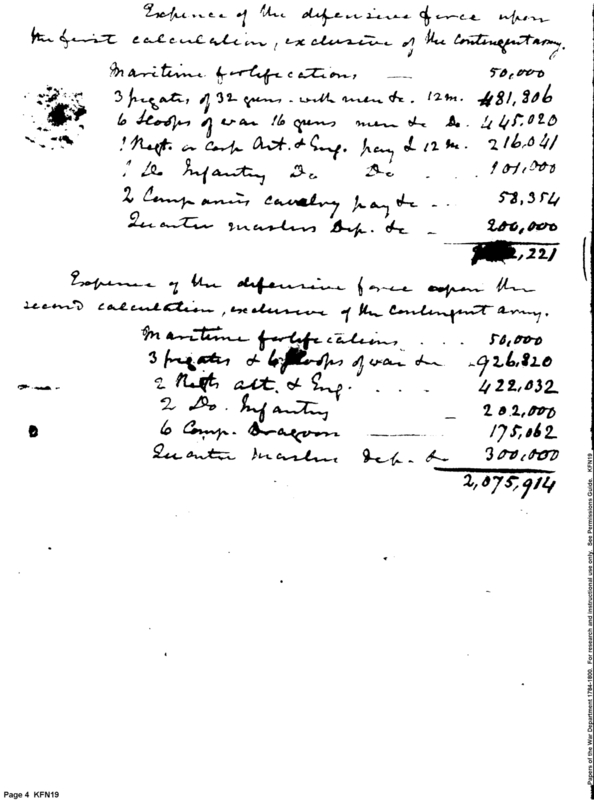 Expence of the defensive force upon
the first calculation, exclusive of the Contingent army.
Maritime fortifications — 50,000
3 frigates of 32 guns - with men &c. 12 m. 481,806
6 Sloops of war 16 guns men &c Do. 445,020
1 Regt. or Corp Art. & Eng. pay & 12 m. 216,041
1 Do Infantry Do Do . 101,000
2 Companies cavalry pay &c - . 58,354
Quarter masters Dep. &c - 200,000
2,221
Expence of the defensive force upon the
second calculation, exclusive of the Contingent army.
Maritime fortifications . . . 50,000
3 frigates & 6 Sloops of war &c - 926,820
2 Regts Art. & Eng. . . . . 422,032
2 Do. Infantry - 202,000
6 Comp. Dragoons —— 175,062
Quarter Masters dep. &c 300,000
2,075,914
Page 4 KFN19
Papers of the War Department 1784-1800. For research and instructional use only. See Permissions Guide. KFN19